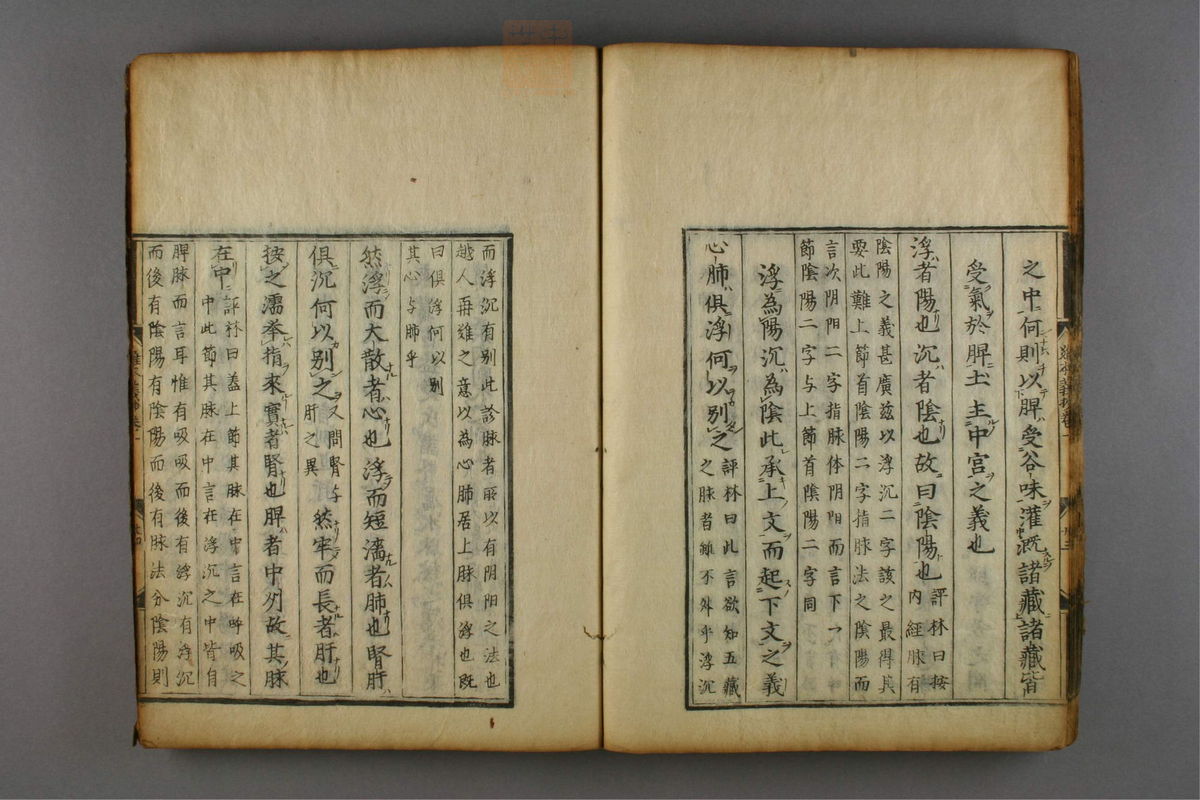 之中何則以脾受谷味灌漑諸藏諸藏皆
受氣於脾土主中宮之義也
浮者陽也沉者陰也故曰陰陽也評林曰按
内經脉有
陰陽之義甚廣茲以浮沉二字該之最得其
要此難上節首陰陽二字指脉法之陰陽而
言次阴阳二字指脉体阴阳而言下一
節陰陽二字与上節首陰陽二字同
浮為陽沉為陰此承上文而起下文之義
心肺俱浮何以別之評林曰此言欲知五藏
之脉者雖不外乎浮沉
而浮沉有别此診脉者所以有阴阳之法也
越人再難之意以為心肺居上脉俱浮也既
曰俱浮何以别
其心与肺乎
然浮而大散者心也浮而短濇者肺也腎肝
俱沉何以別之又問腎与
肝之異然牢而長者肝也
按之濡举指來實者腎也脾者中列故其脉
在中評林曰盖上節其脉在中言在呼吸之
中此節其脉在中言在浮沉之中皆自
脾脉而言耳惟有吸吸而後有浮沉有浮沉
而後有陰陽有陰陽而後有脉法分陰陽則